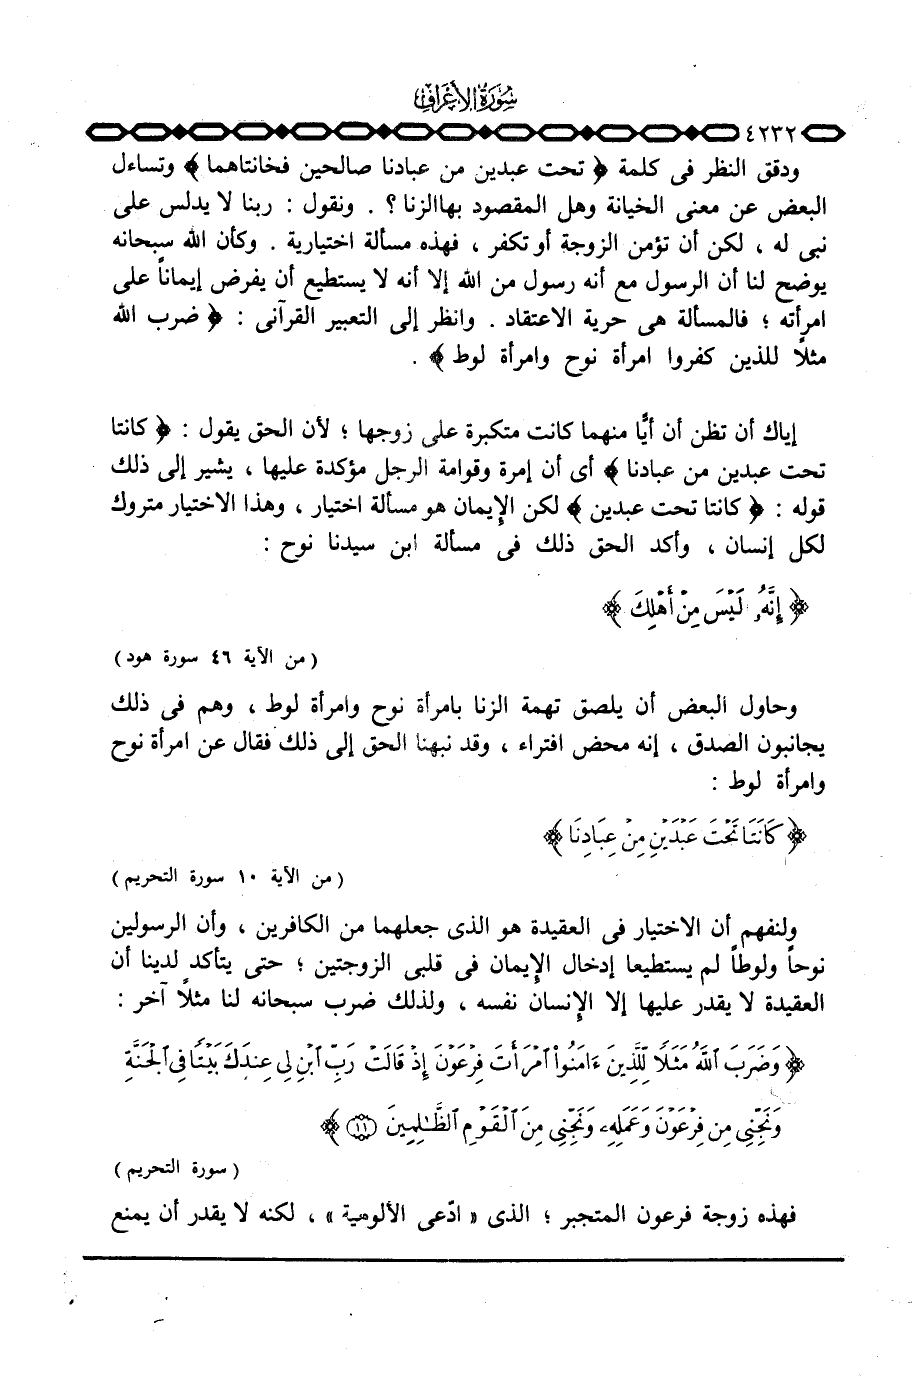 سورة الأعراف
٤٢٣٢
ودقق النظر فى كلمة ﴿ تحت عبدين من عبادنا صالحين فخانتاهما ﴾ وتساءل
البعض عن معنى الخيانة وهل المقصود بهاالزنا ؟ . ونقول : ربنا لا يدلس على
نبى له ، لكن أن تؤمن الزوجة أو تكفر ، فهذه مسألة اختيارية . وكأن الله سبحانه
يوضح لنا أن الرسول مع أنه رسول من الله إلا أنه لا يستطيع أن يفرض إيماناً على
امرأته ؛ فالمسألة هى حرية الاعتقاد . وانظر إلى التعبير القرآنى : ﴿ ضرب الله
مثلاً للذين كفروا امرأة نوح وامرأة لوط ﴾ .
إياك أن تظن أن أيًّا منهما كانت متكبرة على زوجها ؛ لأن الحق يقول : ﴿ كانتا
تحت عبدين من عبادنا ﴾ أى أن إمرة وقوامة الرجل مؤكدة عليها ، يشير إلى ذلك
قوله : ﴿ كانتا تحت عبدين ﴾ لكن الإيمان هو مسألة اختيار ، وهذا الاختيار متروك
لكل إنسان ، وأكد الحق ذلك فى مسألة ابن سيدنا نوح :
﴿ إِنَّهُۥ لَيْسَ مِنْ أَهْلِكَ ﴾
( من الآية ٤٦ سورة هود )
وحاول البعض أن يلصق تهمة الزنا بامرأة نوح وامرأة لوط ، وهم فى ذلك
يجانبون الصدق ، إنه محض افتراء ، وقد نبهنا الحق إلى ذلك فقال عن امرأة نوح
وامرأة لوط :
﴿ كَانَتَا تَحْتَ عَبْدَيْنِ مِنْ عِبَادِنَا ﴾
( من الآية ١٠ سورة التحريم )
ولنفهم أن الاختيار فى العقيدة هو الذى جعلهما من الكافرين ، وأن الرسولين
نوحاً ولوطاً لم يستطيعا إدخال الإيمان فى قلبى الزوجتين ؛ حتى يتأكد لدينا أن
العقيدة لا يقدر عليها إلا الإنسان نفسه ، ولذلك ضرب سبحانه لنا مثلاً آخر :
﴿ وَضَرَبَ ٱللَّهُ مَثَلًا لِّلَّذِينَ ءَامَنُوا۟ ٱمْرَأَتَ فِرْعَوْنَ إِذْ قَالَتْ رَبِّ ٱبْنِ لِى عِندَكَ بَيْتًا فِى ٱلْجَنَّةِ
وَنَجِّنِى مِن فِرْعَوْنَ وَعَمَلِهِۦ وَنَجِّنِى مِنَ ٱلْقَوْمِ ٱلظَّٰلِمِينَ ١١ ﴾
( سورة التحريم )
فهذه زوجة فرعون المتجبر ؛ الذى « ادّعى الألوهية » ، لكنه لا يقدر أن يمنع